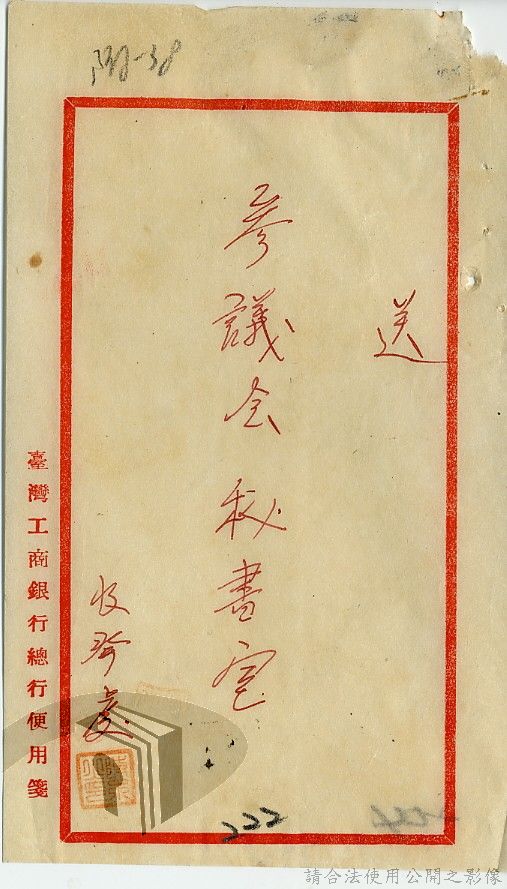 附-38
送
参議会秘書室
收發處
臺灣工商銀行總行便用箋
222
請合法使用公開之影像